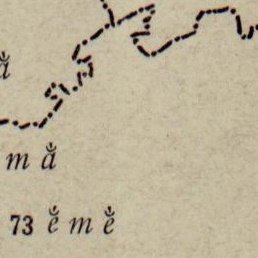 ä̆
m ä̆
73 ĕ̈ m ĕ̈